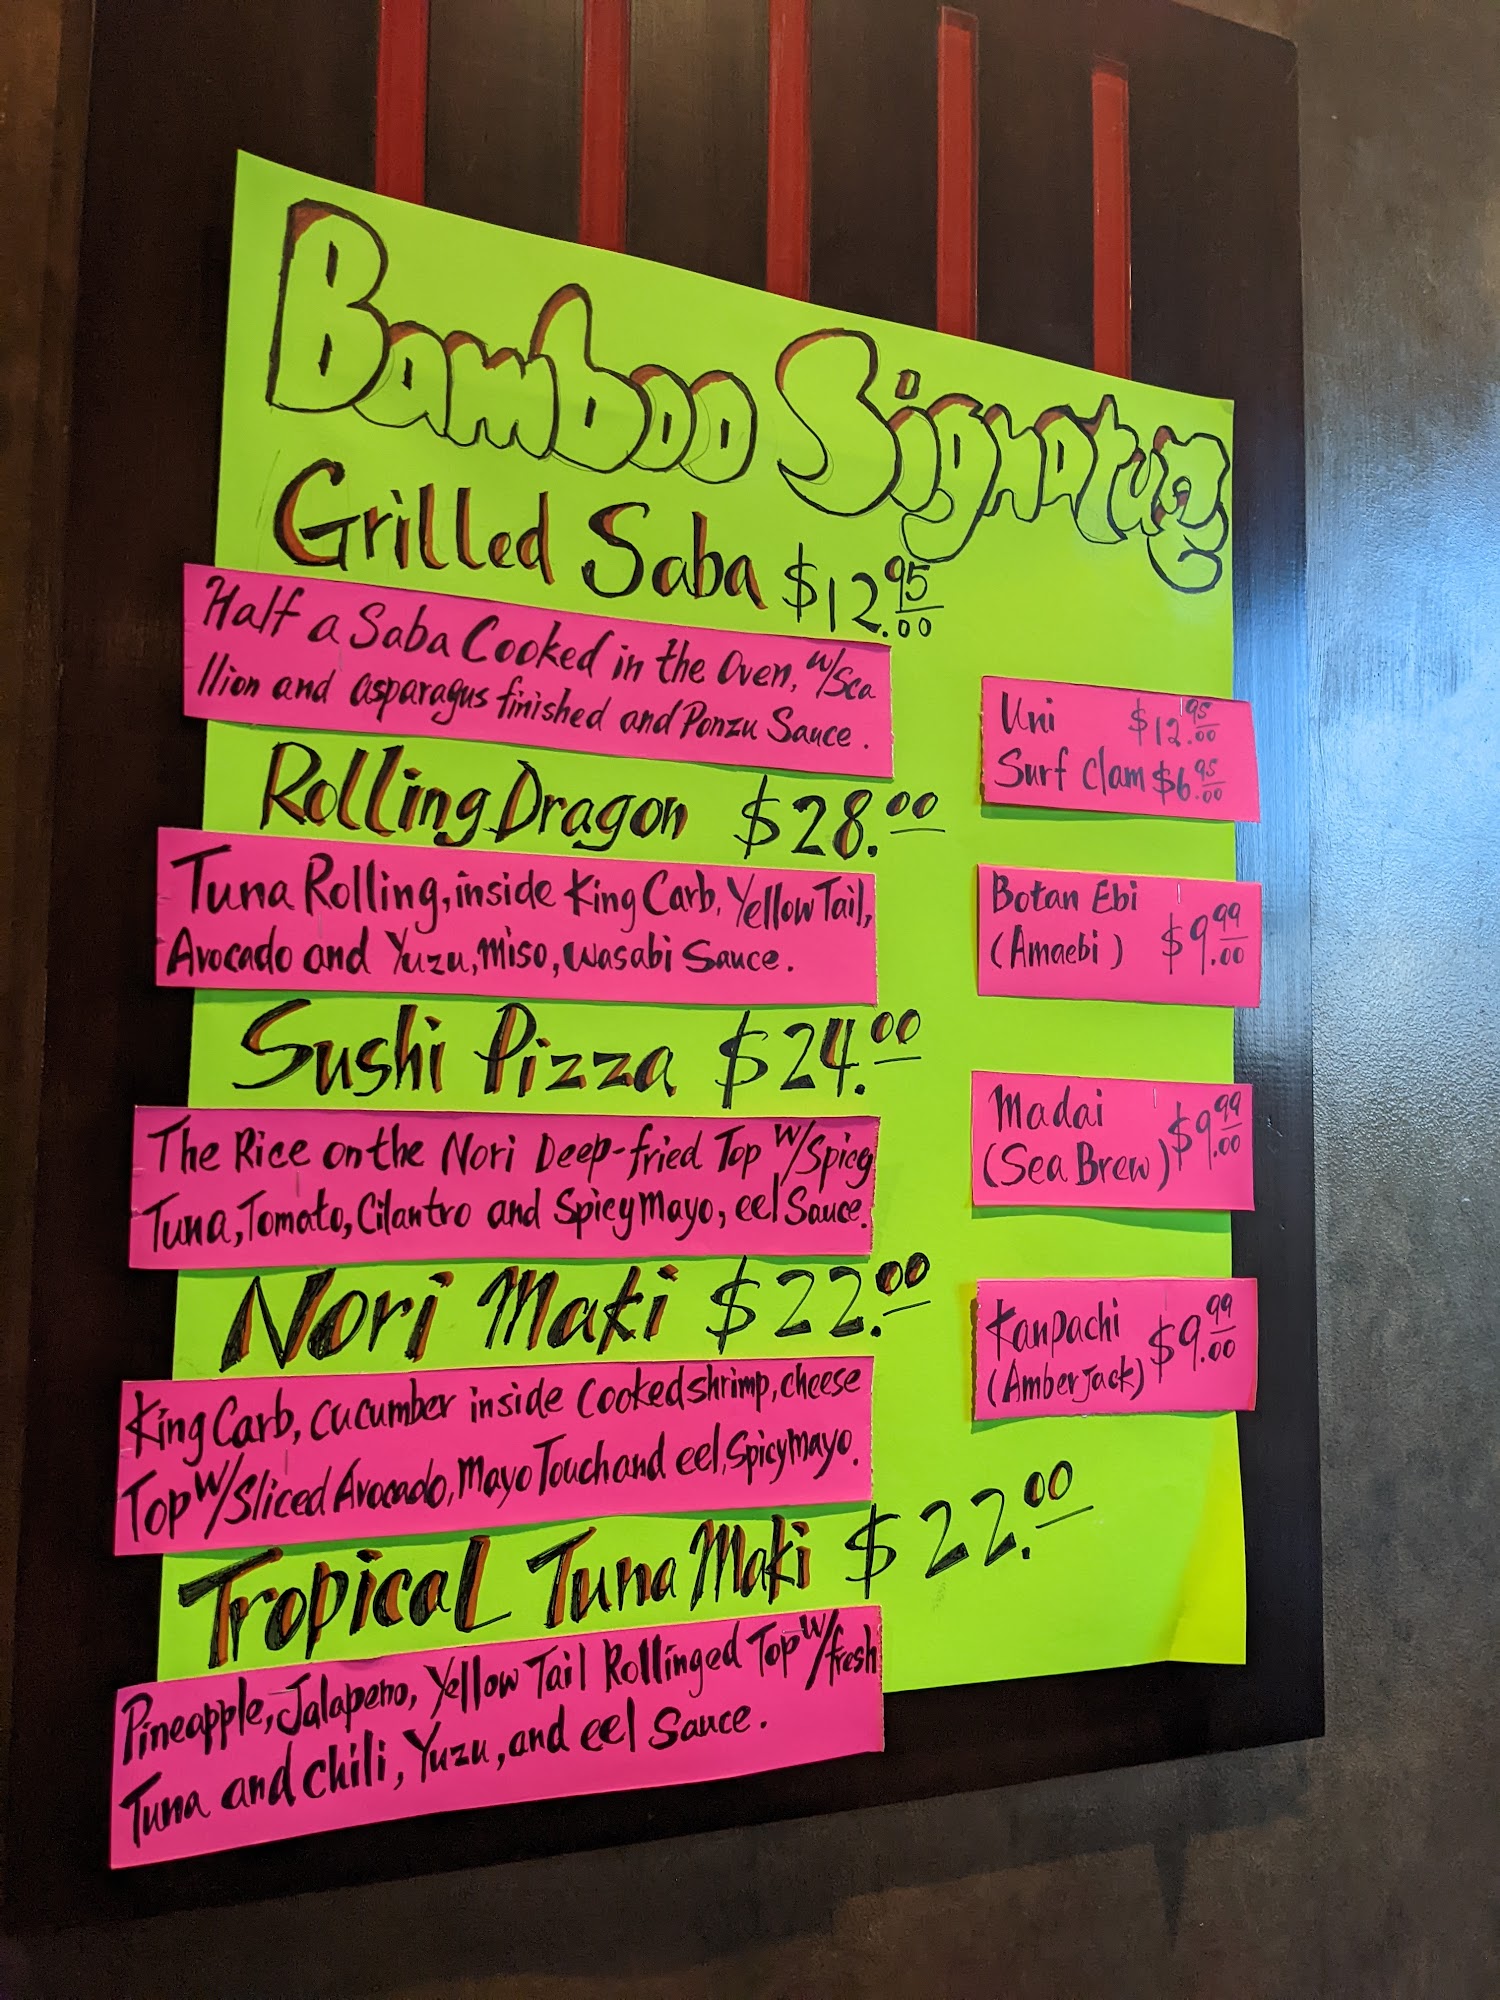 Bamboo Signature
Grilled Saba $12.95/00
Half a Saba Cooked in the Oven, w/Sca
llion and asparagus finished and Ponzu Sauce.
Rolling Dragon $28.00
Tuna Rolling, inside King Carb, Yellow Tail,
Avocado and Yuzu, miso, wasabi Sauce.
Sushi Pizza $24.00
The Rice on the Nori Deep-fried Top w/Spicy
Tuna, Tomato, Cilantro and Spicy Mayo, eel Sauce.
Nori Maki $22.00
King Carb, cucumber inside Cooked shrimp, cheese
Top w/Sliced Avocado, Mayo Touch and eel, Spicy mayo.
Tropical Tuna Maki $22.00
Pineapple, Jalapeno, Yellow Tail Rollinged Top w/fresh
Tuna and chili, Yuzu, and eel Sauce.
Uni $12.95/00
Surf Clam $6.95/00
Botan Ebi
(Amaebi) $9.99/00
Madai
(Sea Brew) $9.99/00
Kanpachi
(Amber jack) $9.99/00